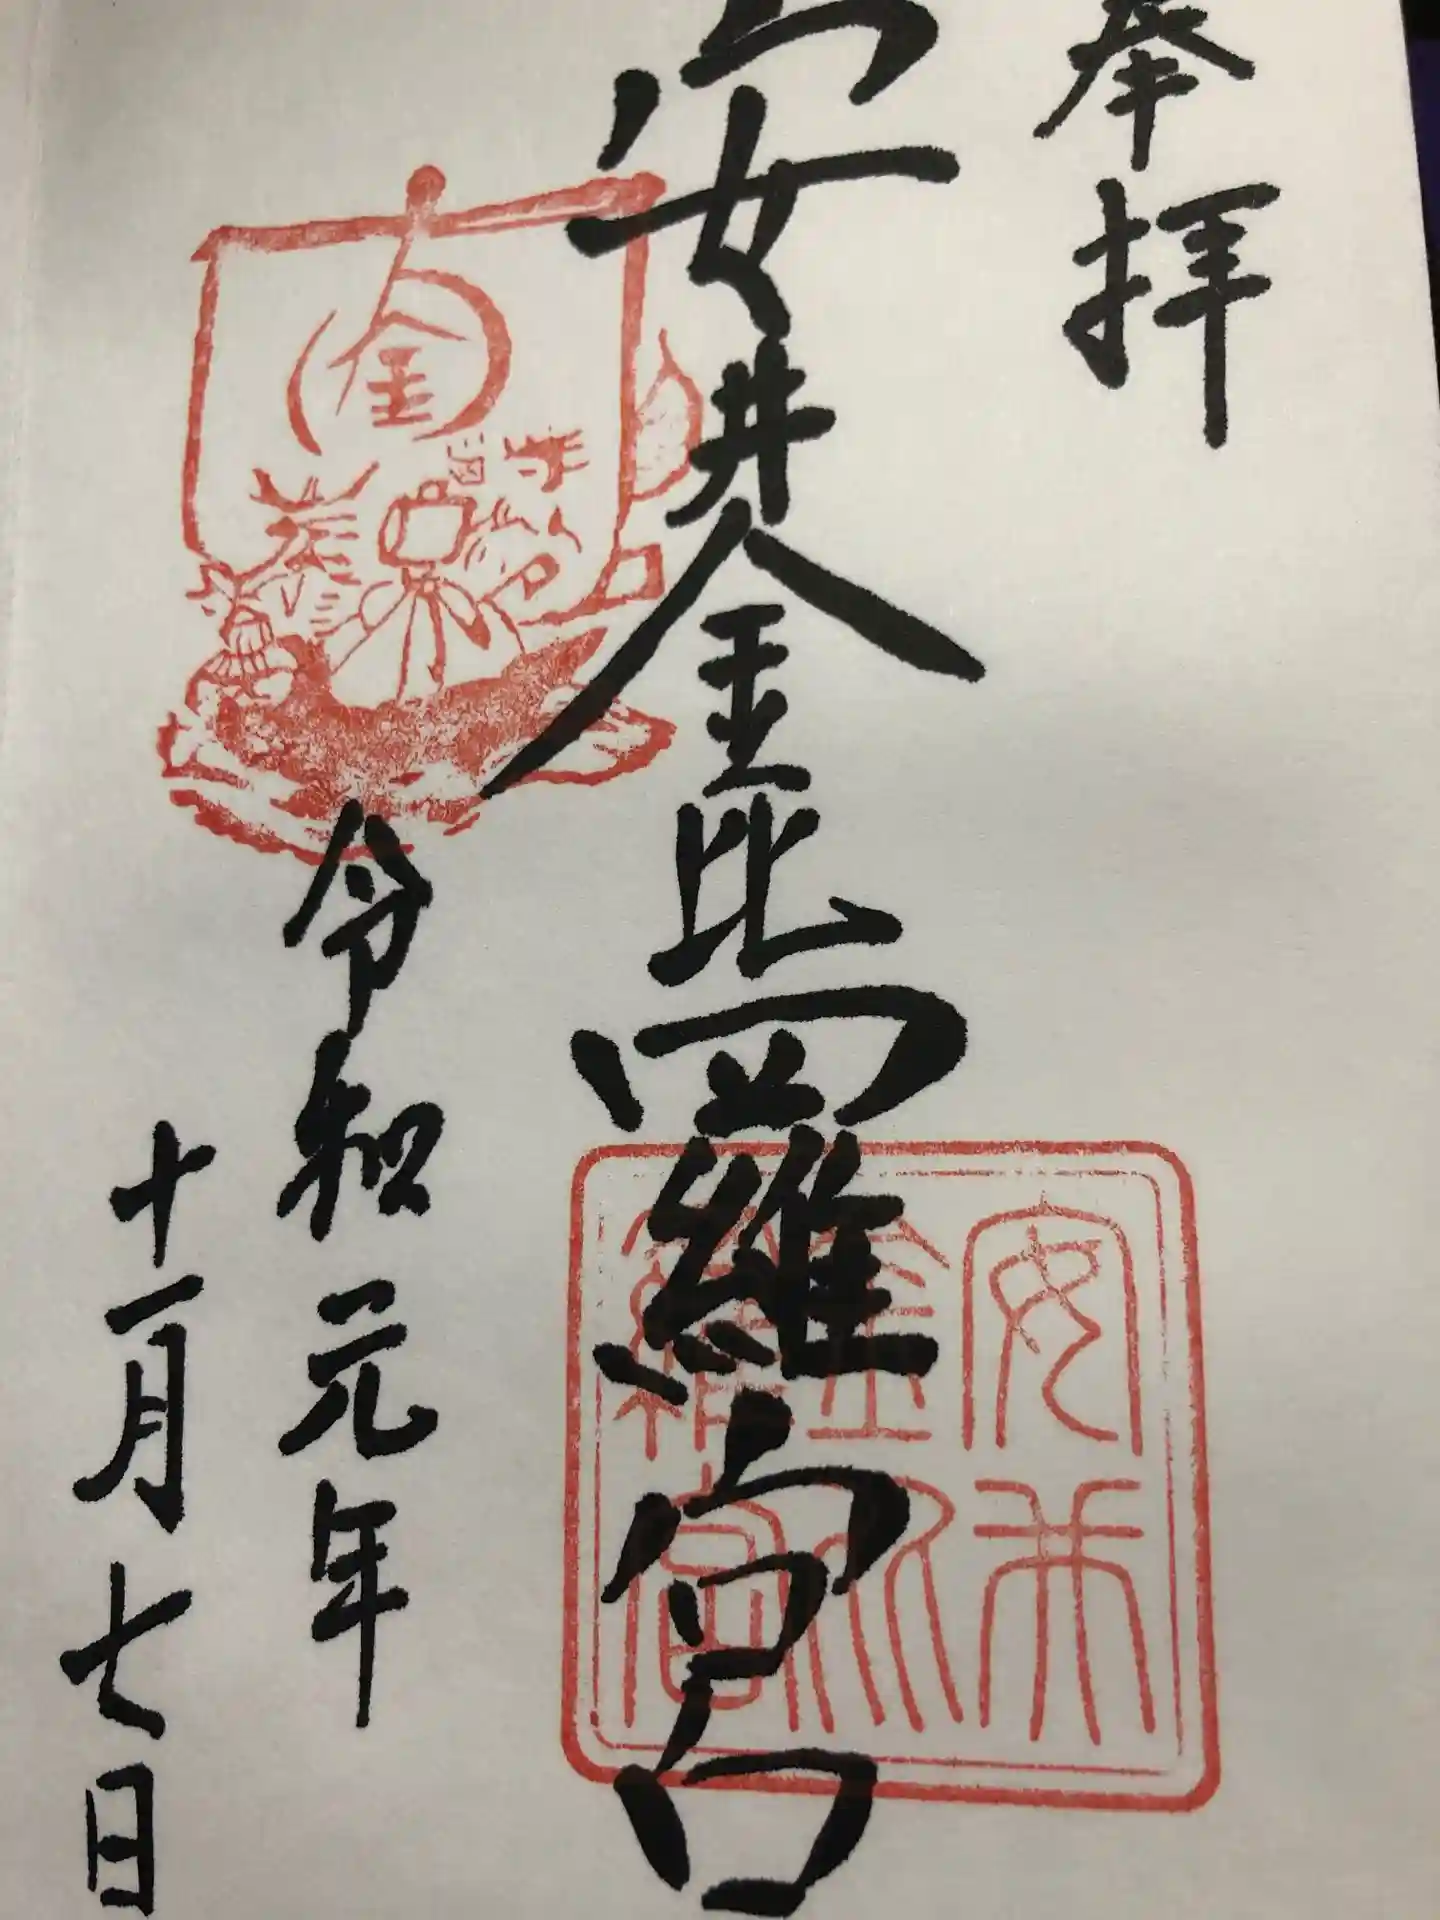 奉拝
安井金比羅宮
令和元年
十一月七日
金
安井
金比
羅宮